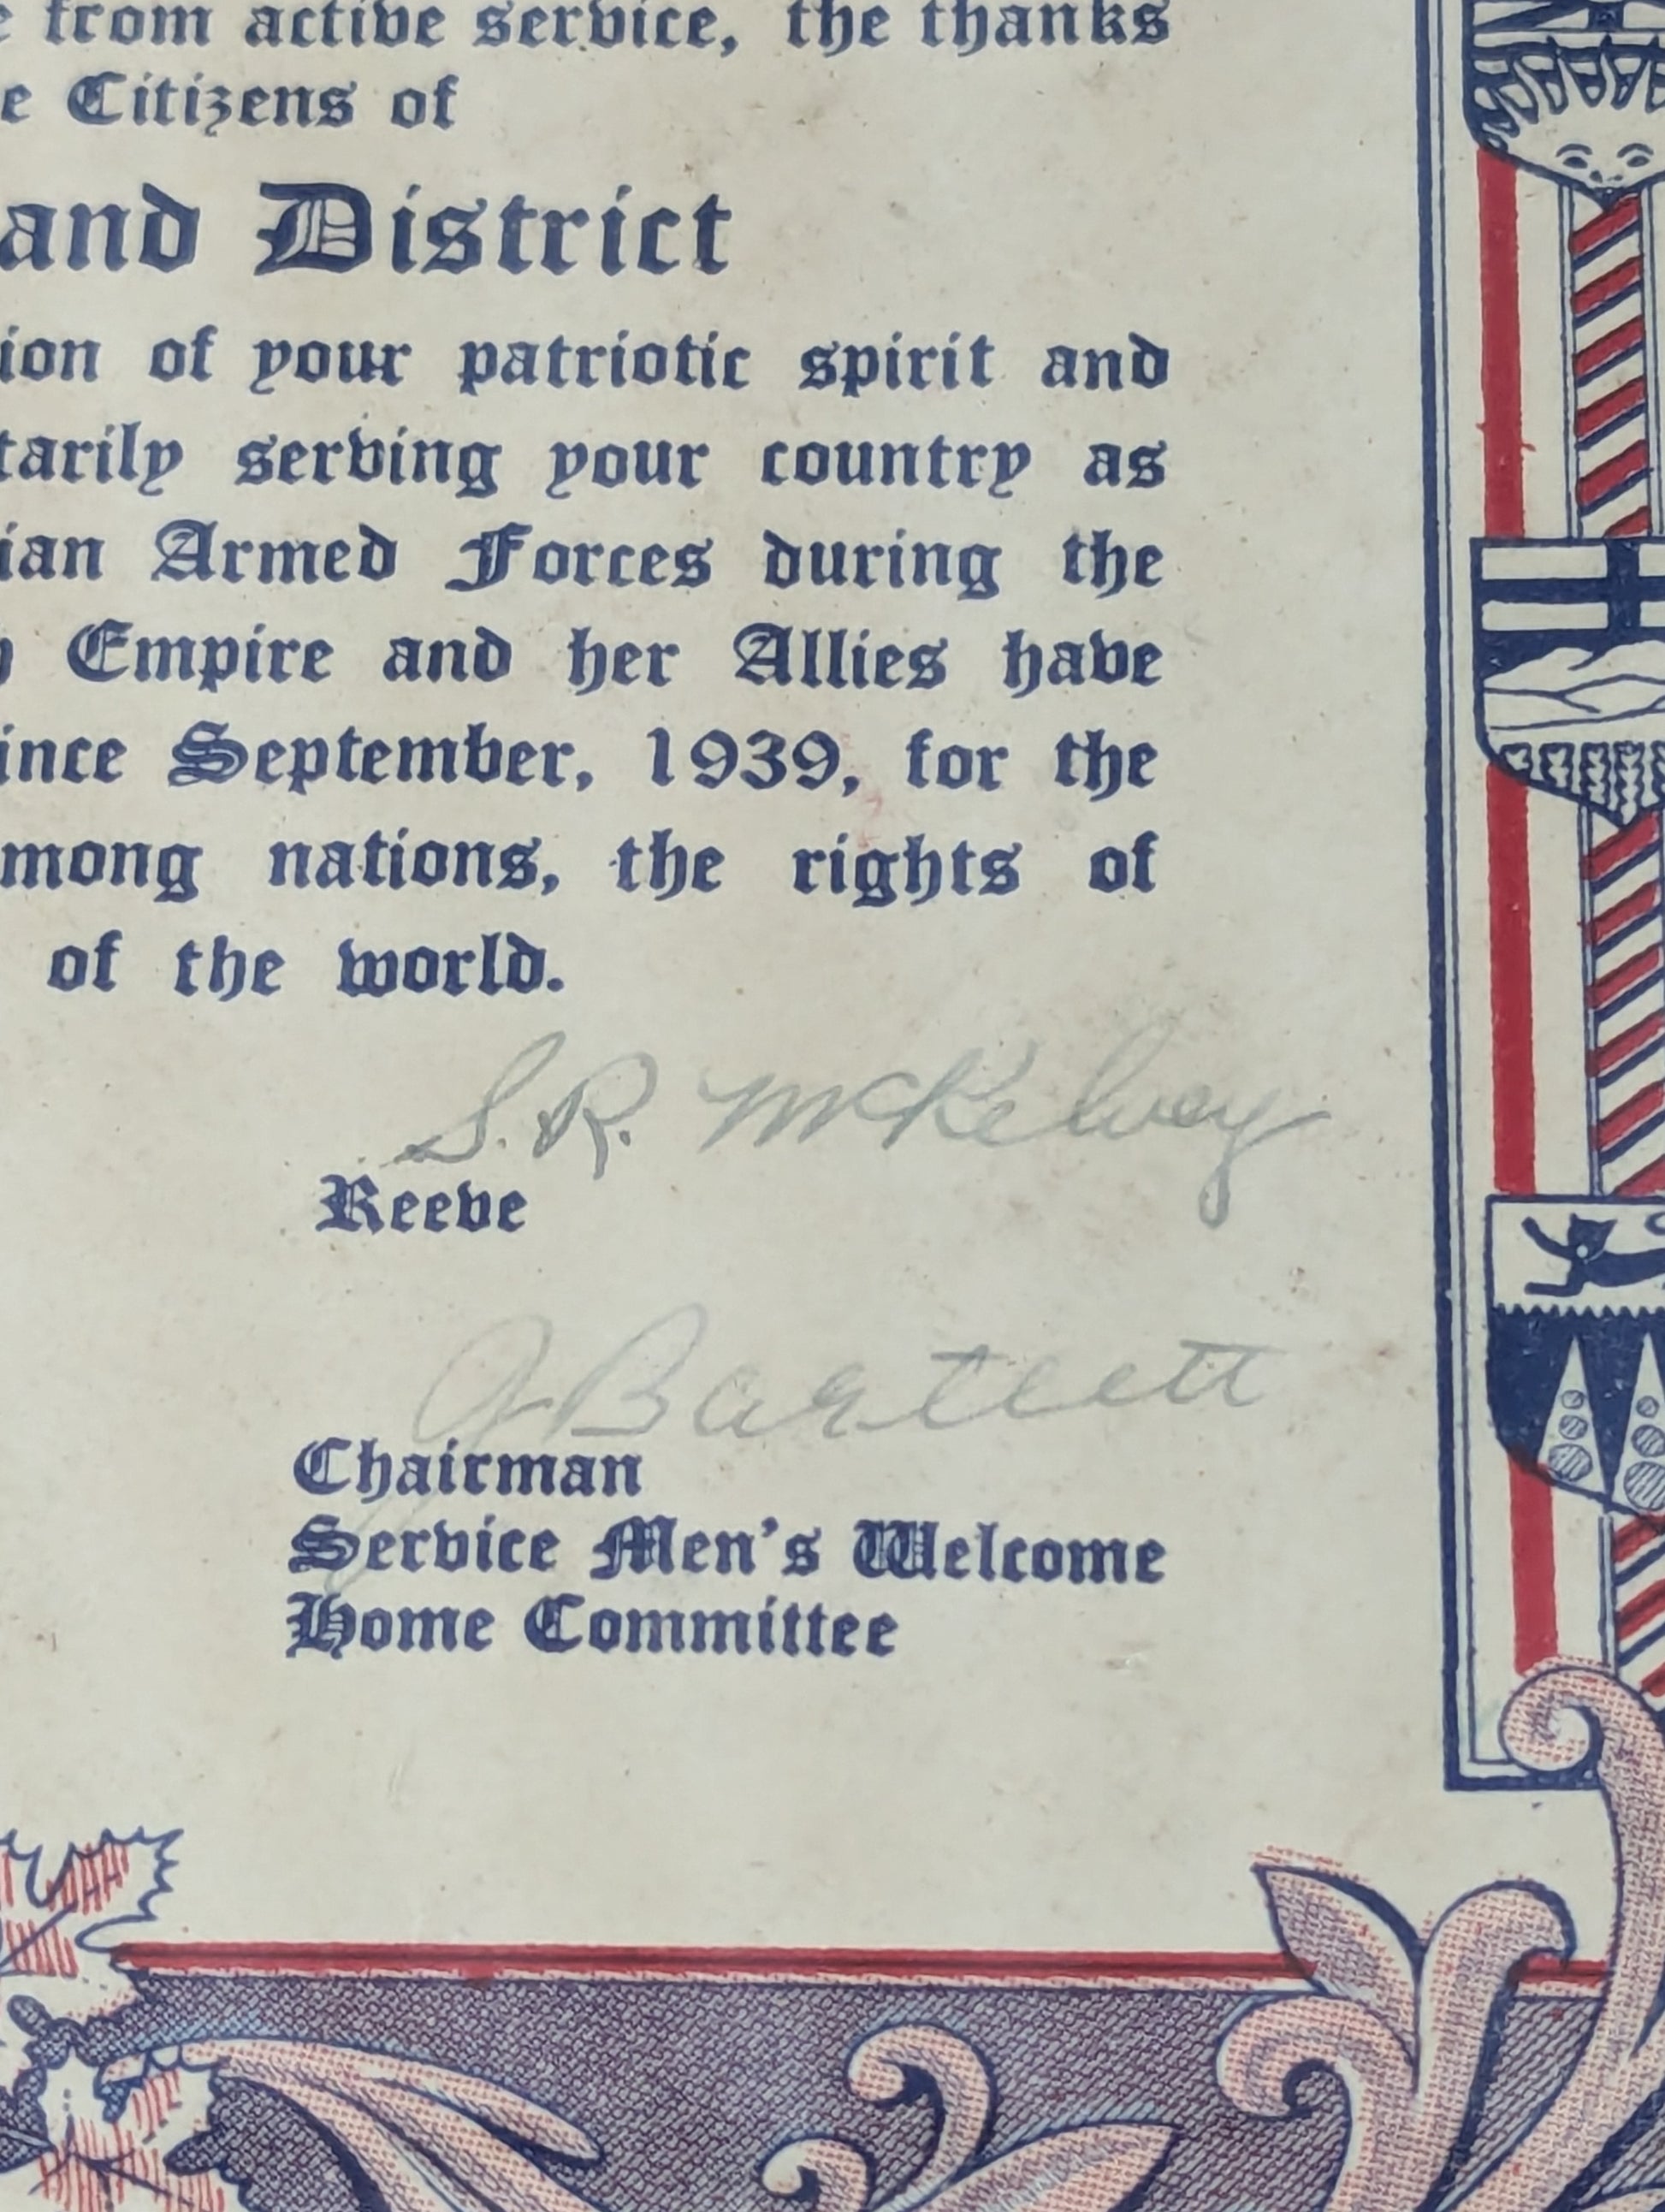 from active service, the thanks
e Citizens of
and District
ion of your patriotic spirit and
tarily serving your country as
ian Armed Forces during the
Empire and her Allies have
ince September, 1939, for the
mong nations, the rights of
of the world.
S. R. McKelvey
Reeve
J Bartlett
Chairman
Service Men's Welcome
Home Committee